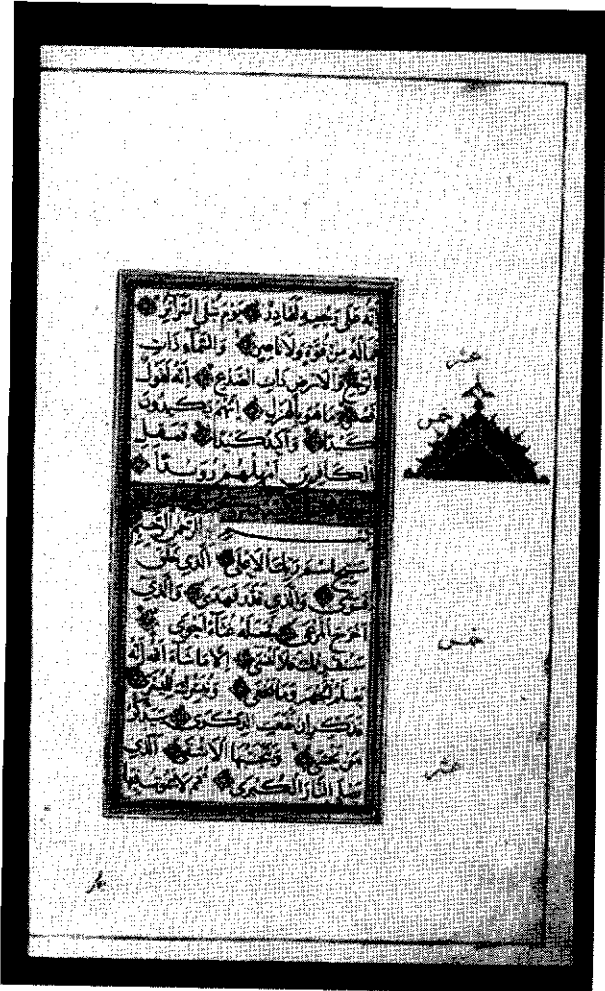 نَّهُ عَلَىٰ رَجْعِهِ لَقَادِرٌ يَوْمَ تُبْلَى السَّرَائِرُ
فَمَا لَهُ مِنْ قُوَّةٍ وَلَا نَاصِرٍ وَالسَّمَاءِ ذَاتِ
الرَّجْعِ وَالْاَرْضِ ذَاتِ الصَّدْعِ اِنَّهُ لَقَوْلٌ
فَصْلٌ وَمَا هُوَ بِالْهَزْلِ اِنَّهُمْ يَكِيدُونَ
كَيْدًا وَاَكِيدُ كَيْدًا فَمَهِّلِ
الْكَافِرِينَ اَمْهِلْهُمْ رُوَيْدًا
بِسْمِ الرَّحْمٰنِ الرَّحِيمِ
سَبِّحِ اسْمَ رَبِّكَ الْاَعْلَى الَّذِي خَلَقَ
فَسَوَّى وَالَّذِي قَدَّرَ فَهَدَى وَالَّذِي
اَخْرَجَ الْمَرْعَى فَجَعَلَهُ غُثَاءً اَحْوَى
سَنُقْرِئُكَ فَلَا تَنْسَى اِلَّا مَا شَاءَ اللّٰهُ اِنَّهُ
يَعْلَمُ الْجَهْرَ وَمَا يَخْفَى وَنُيَسِّرُكَ لِلْيُسْرَى
فَذَكِّرْ اِنْ نَفَعَتِ الذِّكْرَى سَيَذَّكَّرُ
مَنْ يَخْشَى وَيَتَجَنَّبُهَا الْاَشْقَى الَّذِي
يَصْلَى النَّارَ الْكُبْرَى ثُمَّ لَا يَمُوتُ فِيهَا
عشر
خمس
خمس
عشر